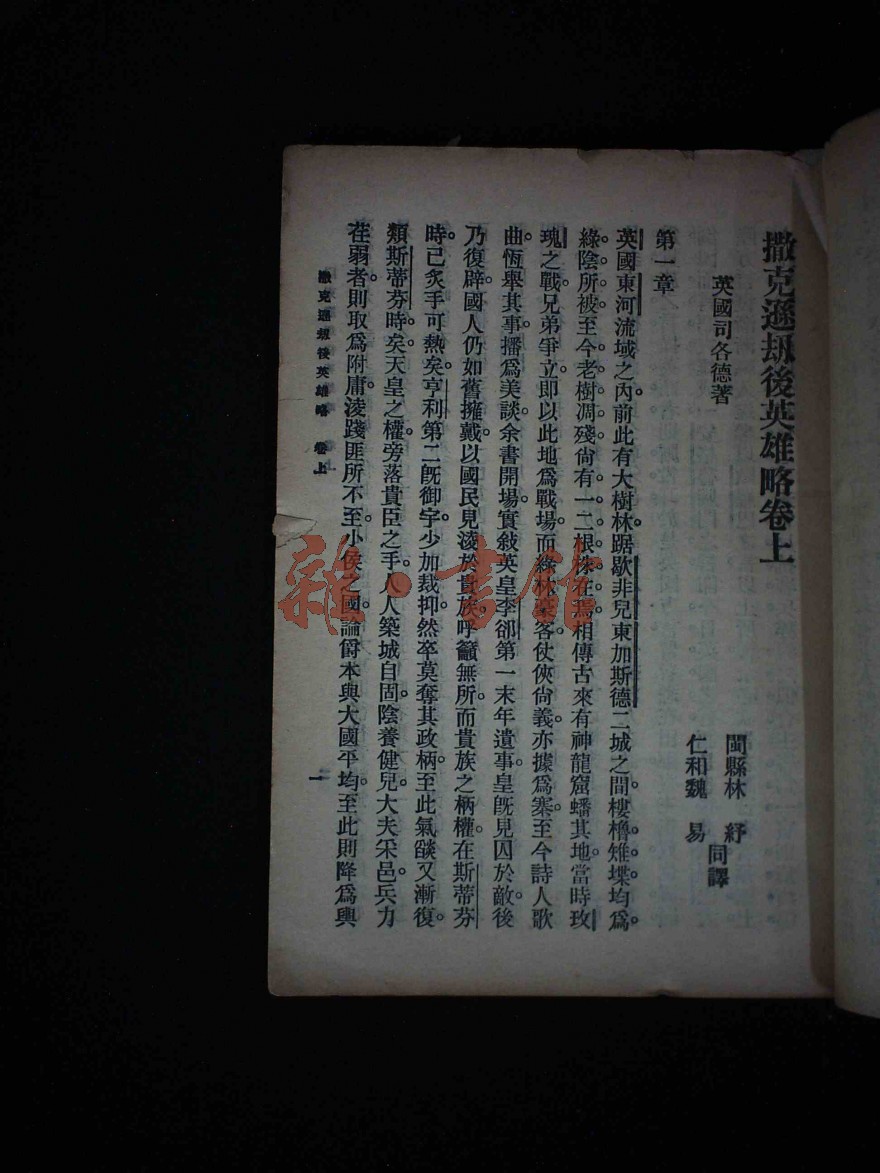 撒克遜劫後英雄略卷上
英國司各德著
閩縣林 紓
仁和魏 易
同譯
第一章
英國東河流域之內。前此有大樹林。踞歇非兒東加斯德二城之間。樓櫓雉堞。均爲
綠陰所被。至今老樹凋殘。尙有一二根株在焉。相傳古來有神龍窟蟠其地。當時玫
瑰之戰。兄弟爭立。即以此地爲戰場。而綠林豪客。仗俠尙義。亦據爲寨。至今詩人歌
曲。恆舉其事。播爲美談。余書開場。實敍英皇李卻第一末年遺事。皇旣見囚於敵。後
乃復辟。國人仍如舊擁戴。以國民見淩於貴族。呼籲無所。而貴族之柄權。在斯蒂芬
時。已炙手可熱矣。亨利第二旣御宇。少加裁抑。然卒莫奪其政柄。至此氣燄又漸復。
類斯蒂芬時矣。天皇之權。旁落貴臣之手。人人築城自固。陰養健兒。大夫采邑。兵力
荏弱者。則取爲附庸。淩踐匪所不至。小侯之國。論爵本與大國平均。至此則降爲輿
撒克遜劫後英雄略 卷上
一
雜·書館